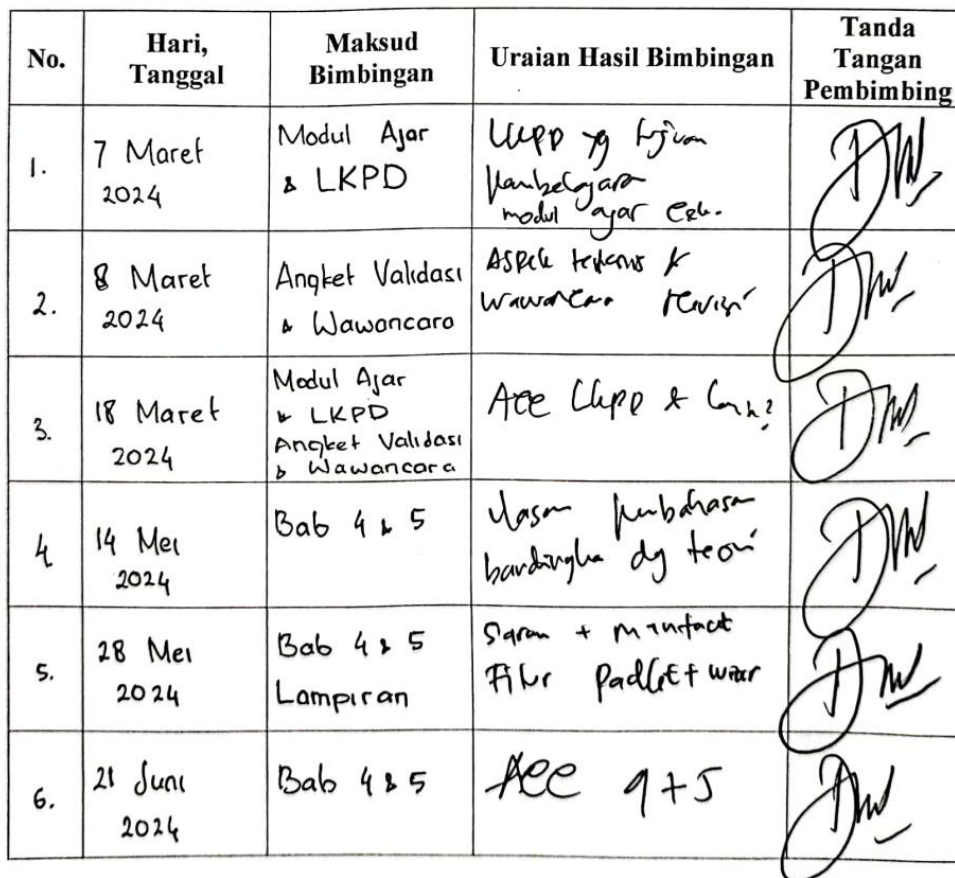 No.
Hari,
Tanggal
Maksud
Bimbingan
Uraian Hasil Bimbingan
Tanda
Tangan
Pembimbing
1.
7 Maret
2024
Modul Ajar
& LKPD
LKPD yg tujuan
pembelajaran
modul ajar
2.
8 Maret
2024
Angket Validasi
& Wawancara
Aspek
wawancara revisi
3.
18 Maret
2024
Modul Ajar
& LKPD
Angket Validasi
& Wawancara
Acc LKPD &
4
14 Mei
2024
Bab 4 & 5
pembahasan
dg teori
5.
28 Mei
2024
Bab 4 & 5
Lampiran
Saran + manfaat
Fitur padlet +
6.
21 Juni
2024
Bab 4 & 5
Acc 4+5